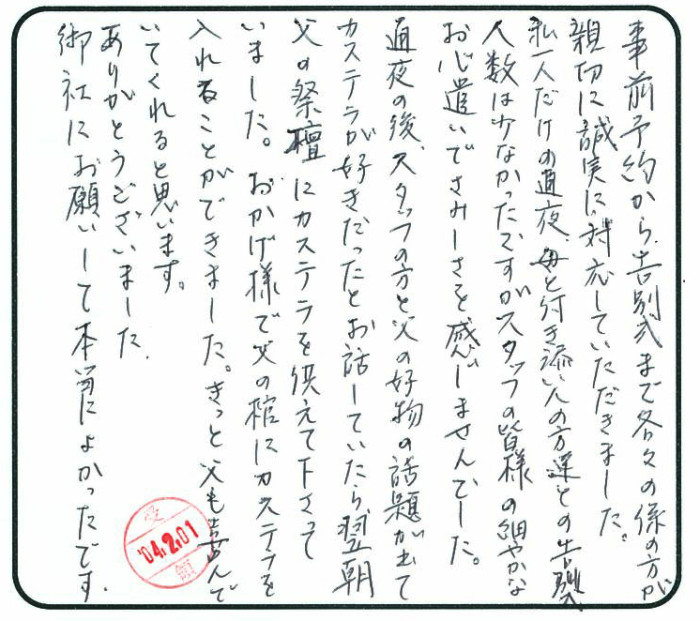 事前予約から、告別式まで各々の係の方が
親切に誠実に対応していただきました。
私一人だけの通夜、母と付き添い人の方達との告別式
人数は少なかったですがスタッフの皆様の細やかな
お心遣いでさみしさを感じませんでした。
通夜の後、スタッフの方と父の好物の話題が出て
カステラが好きだったとお話していたら翌朝
父の祭壇にカステラを供えて下さって
いました。おかげ様で父の棺にカステラを
入れることができました。きっと父も喜んで
いてくれると思います。
ありがとうございました。
御社にお願いして本当によかったです。
受
'04.2.01
領